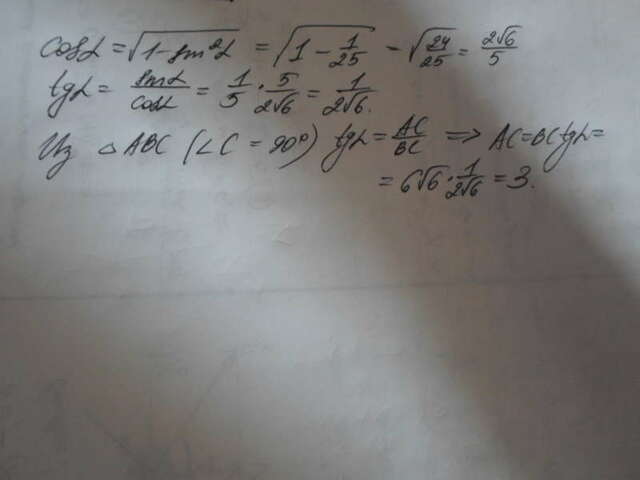 cosα = √(1 - sin²α) = √(1 - 1/25) - √(24/25) = 2√6/5
tgα = sinα/cosα = 1/5 · 5/2√6 = 1/2√6.
Из △ABC (∠C = 90°) tgα = AC/BC => AC = BC tgα =
= 6√6 · 1/2√6 = 3.